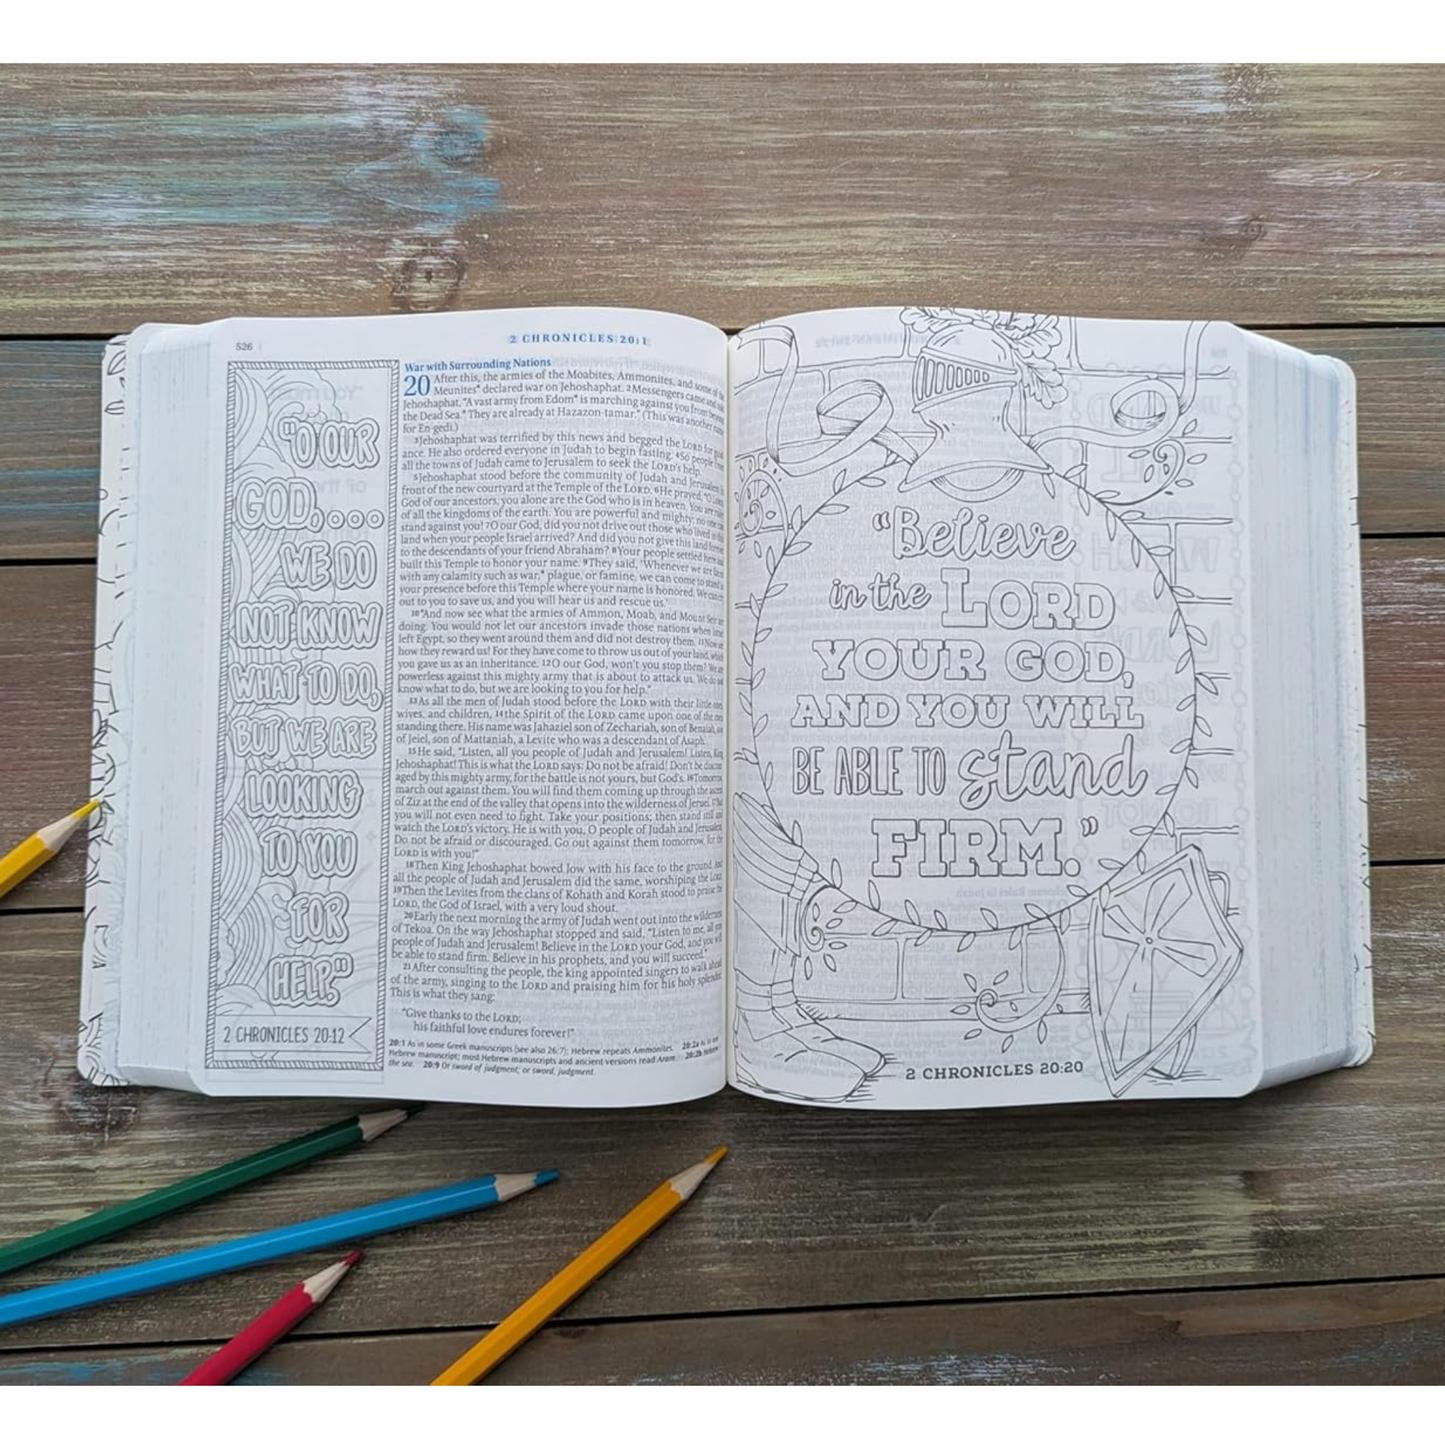 526
2 CHRONICLES 20:1
"O OUR
GOD....
WE DO
NOT KNOW
WHAT TO DO,
BUT WE ARE
LOOKING
TO YOU
FOR
HELP."
2 CHRONICLES 20:12
War with Surrounding Nations
20 After this, the armies of the Moabites, Ammonites, and some of the
Meunites* declared war on Jehoshaphat. 2Messengers came and told
Jehoshaphat, "A vast army from Edom* is marching against you from beyond
the Dead Sea.* They are already at Hazazon-tamar." (This was another name
for En-gedi.)
3Jehoshaphat was terrified by this news and begged the LORD for guid-
ance. He also ordered everyone in Judah to begin fasting. 4So people from
all the towns of Judah came to Jerusalem to seek the LORD's help.
5Jehoshaphat stood before the community of Judah and Jerusalem in
front of the new courtyard at the Temple of the LORD. 6He prayed, "O LORD,
God of our ancestors, you alone are the God who is in heaven. You are ruler
of all the kingdoms of the earth. You are powerful and mighty; no one can
stand against you! 7O our God, did you not drive out those who lived in this
land when your people Israel arrived? And did you not give this land forever
to the descendants of your friend Abraham? 8Your people settled here and
built this Temple to honor your name. 9They said, 'Whenever we are faced
with any calamity such as war,* plague, or famine, we can come to stand in
your presence before this Temple where your name is honored. We can cry
out to you to save us, and you will hear us and rescue us.'
10"And now see what the armies of Ammon, Moab, and Mount Seir are
doing. You would not let our ancestors invade those nations when Israel
left Egypt, so they went around them and did not destroy them. 11Now see
how they reward us! For they have come to throw us out of your land, which
you gave us as an inheritance. 12O our God, won't you stop them? We are
powerless against this mighty army that is about to attack us. We do not
know what to do, but we are looking to you for help."
13As all the men of Judah stood before the LORD with their little ones,
wives, and children, 14the Spirit of the LORD came upon one of the men
standing there. His name was Jahaziel son of Zechariah, son of Benaiah, son
of Jeiel, son of Mattaniah, a Levite who was a descendant of Asaph.
15He said, "Listen, all you people of Judah and Jerusalem! Listen, King
Jehoshaphat! This is what the LORD says: Do not be afraid! Don't be discour-
aged by this mighty army, for the battle is not yours, but God's. 16Tomorrow,
march out against them. You will find them coming up through the ascent
of Ziz at the end of the valley that opens into the wilderness of Jeruel. 17But
you will not even need to fight. Take your positions; then stand still and
watch the LORD's victory. He is with you, O people of Judah and Jerusalem.
Do not be afraid or discouraged. Go out against them tomorrow, for the
LORD is with you!"
18Then King Jehoshaphat bowed low with his face to the ground. And
all the people of Judah and Jerusalem did the same, worshiping the LORD.
19Then the Levites from the clans of Kohath and Korah stood to praise the
LORD, the God of Israel, with a very loud shout.
20Early the next morning the army of Judah went out into the wilderness
of Tekoa. On the way Jehoshaphat stopped and said, "Listen to me, all you
people of Judah and Jerusalem! Believe in the LORD your God, and you will
be able to stand firm. Believe in his prophets, and you will succeed."
21After consulting the people, the king appointed singers to walk ahead
of the army, singing to the LORD and praising him for his holy splendor.
This is what they sang:
"Give thanks to the LORD;
his faithful love endures forever!"
20:1 As in some Greek manuscripts (see also 26:7); Hebrew repeats Ammonites. 20:2a As in one
Hebrew manuscript; most Hebrew manuscripts and ancient versions read Aram. 20:2b Hebrew
the sea. 20:9 Or sword of judgment; or sword, judgment.
"Believe
in the LORD
YOUR GOD,
AND YOU WILL
BE ABLE TO stand
FIRM."
2 CHRONICLES 20:20